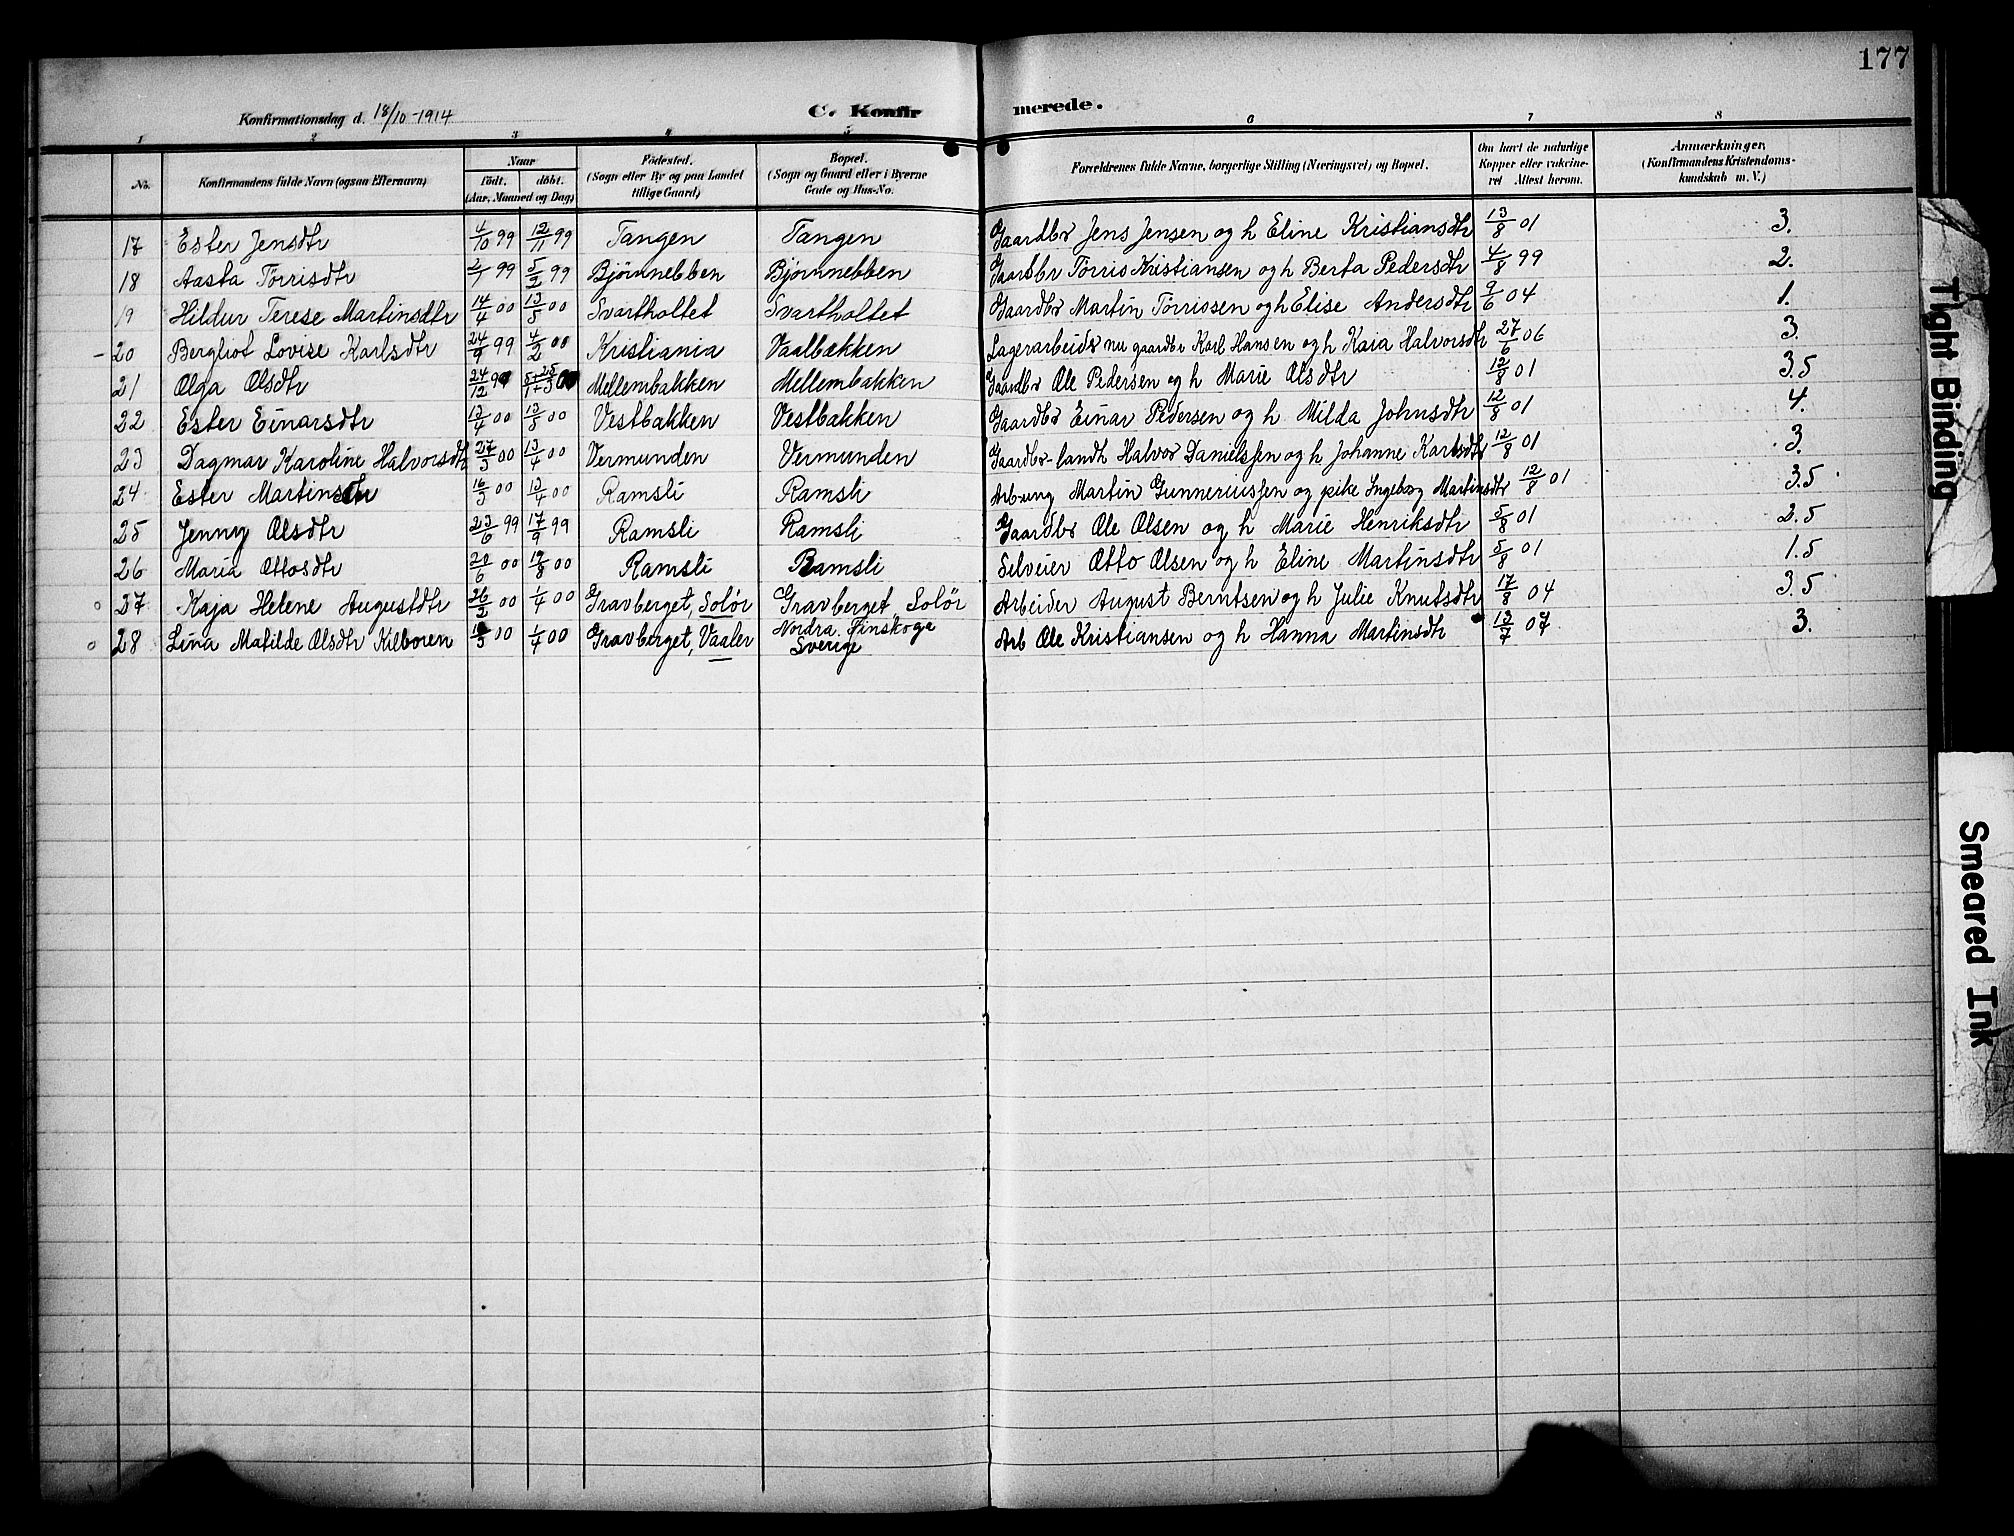 177
Konfirmationsdag d. 18/10-1914 C. Konfirmerede.
1 2 3 4 5 6 7 8
No. Konfirmandens fulde Navn (ogsaa Efternavn) Naar födt. döbt. (Aar, Maaned og Dag) Födested. (Sogn eller By og paa Landet tillige Gaard) Bopæl. (Sogn og Gaard eller i Byerne Gade og Hus-No. Forældrenes fulde Navne, borgerlige Stilling (Næringsvei) og Bopæl. Om havt de naturlige Kopper eller vakcineret Attest herom. Anmærkninger, (Konfirmandens Kristendomskundskab m. V.)
17 Ester Jensdtr 4/10 99 12/11 99 Tangen Tangen Gaardbr Jens Jensen og h Eline Kristiansdtr 13/8 01 3.
18 Aasta Törrisdtr 2/1 99 5/2 99 Bjørnnebben Bjørnnebben Gaardbr Törris Kristiansen og h Berta Pedersdtr 4/8 99 2.
19 Hildur Terese Martinsdtr 14/4 00 13/5 00 Svartholtet Svartholtet Gaardbr Martin Törrissen og h Elise Andersdtr 9/6 04 1.
- 20 Bergliot Lovise Karlsdtr 24/9 99 4/2 00 Kristiania Vaalbækken Lagerarbeidr nu gaardbr Karl Hansen og h Kaia Halvorsdtr 27/6 06 3.
21 Olga Olsdtr 24/12 99 Mellembakken Mellembakken Gaardbr Ole Pedersen og h Marie Olsdtr 12/8 01 3.5
22 Ester Einarsdtr 13/4 00 13/5 00 Vestbakken Vestbakken Gaardbr Einar Pedersen og h Milda Johnsdtr 12/8 01 4.
23 Dagmar Karoline Halvorsdtr 27/3 00 13/4 00 Vermunden Vermunden Gaardbr-landh Halvor Danielssen og h Johanne Karlsdtr 12/8 01 3.
24 Ester Martinsdtr 16/3 00 13/4 00 Ramsli Ramsli Arb-ung Martin Gunneriussen og pike Ingeborg Martinsdtr 12/8 01 3.5
25 Jenny Olsdtr 23/6 99 17/9 99 Ramsli Ramsli Gaardbr Ole Olsen og h Marie Henriksdtr 5/8 01 2.5
26 Maria Ottosdtr 20/6 00 00 Ramsli Ramsli Selveier Otto Olsen og h Eline Martinsdtr 5/8 01 1.5
o 27 Kaja Helene Augustdtr 26/2 00 1/4 00 Gravberget, Solör Gravberget, Solör Arbeider August Berntsen og h Julie Knutsdtr 17/8 04 3.5
o 28 Lina Matilde Olsdtr Kilboren 00 1/4 00 Gravberget, Vaaler Nordra Finskoga Sverige Arb Ole Kristiansen og h Hanna Martinsdtr 13/7 07 3.
Tight Binding
Smeared Ink